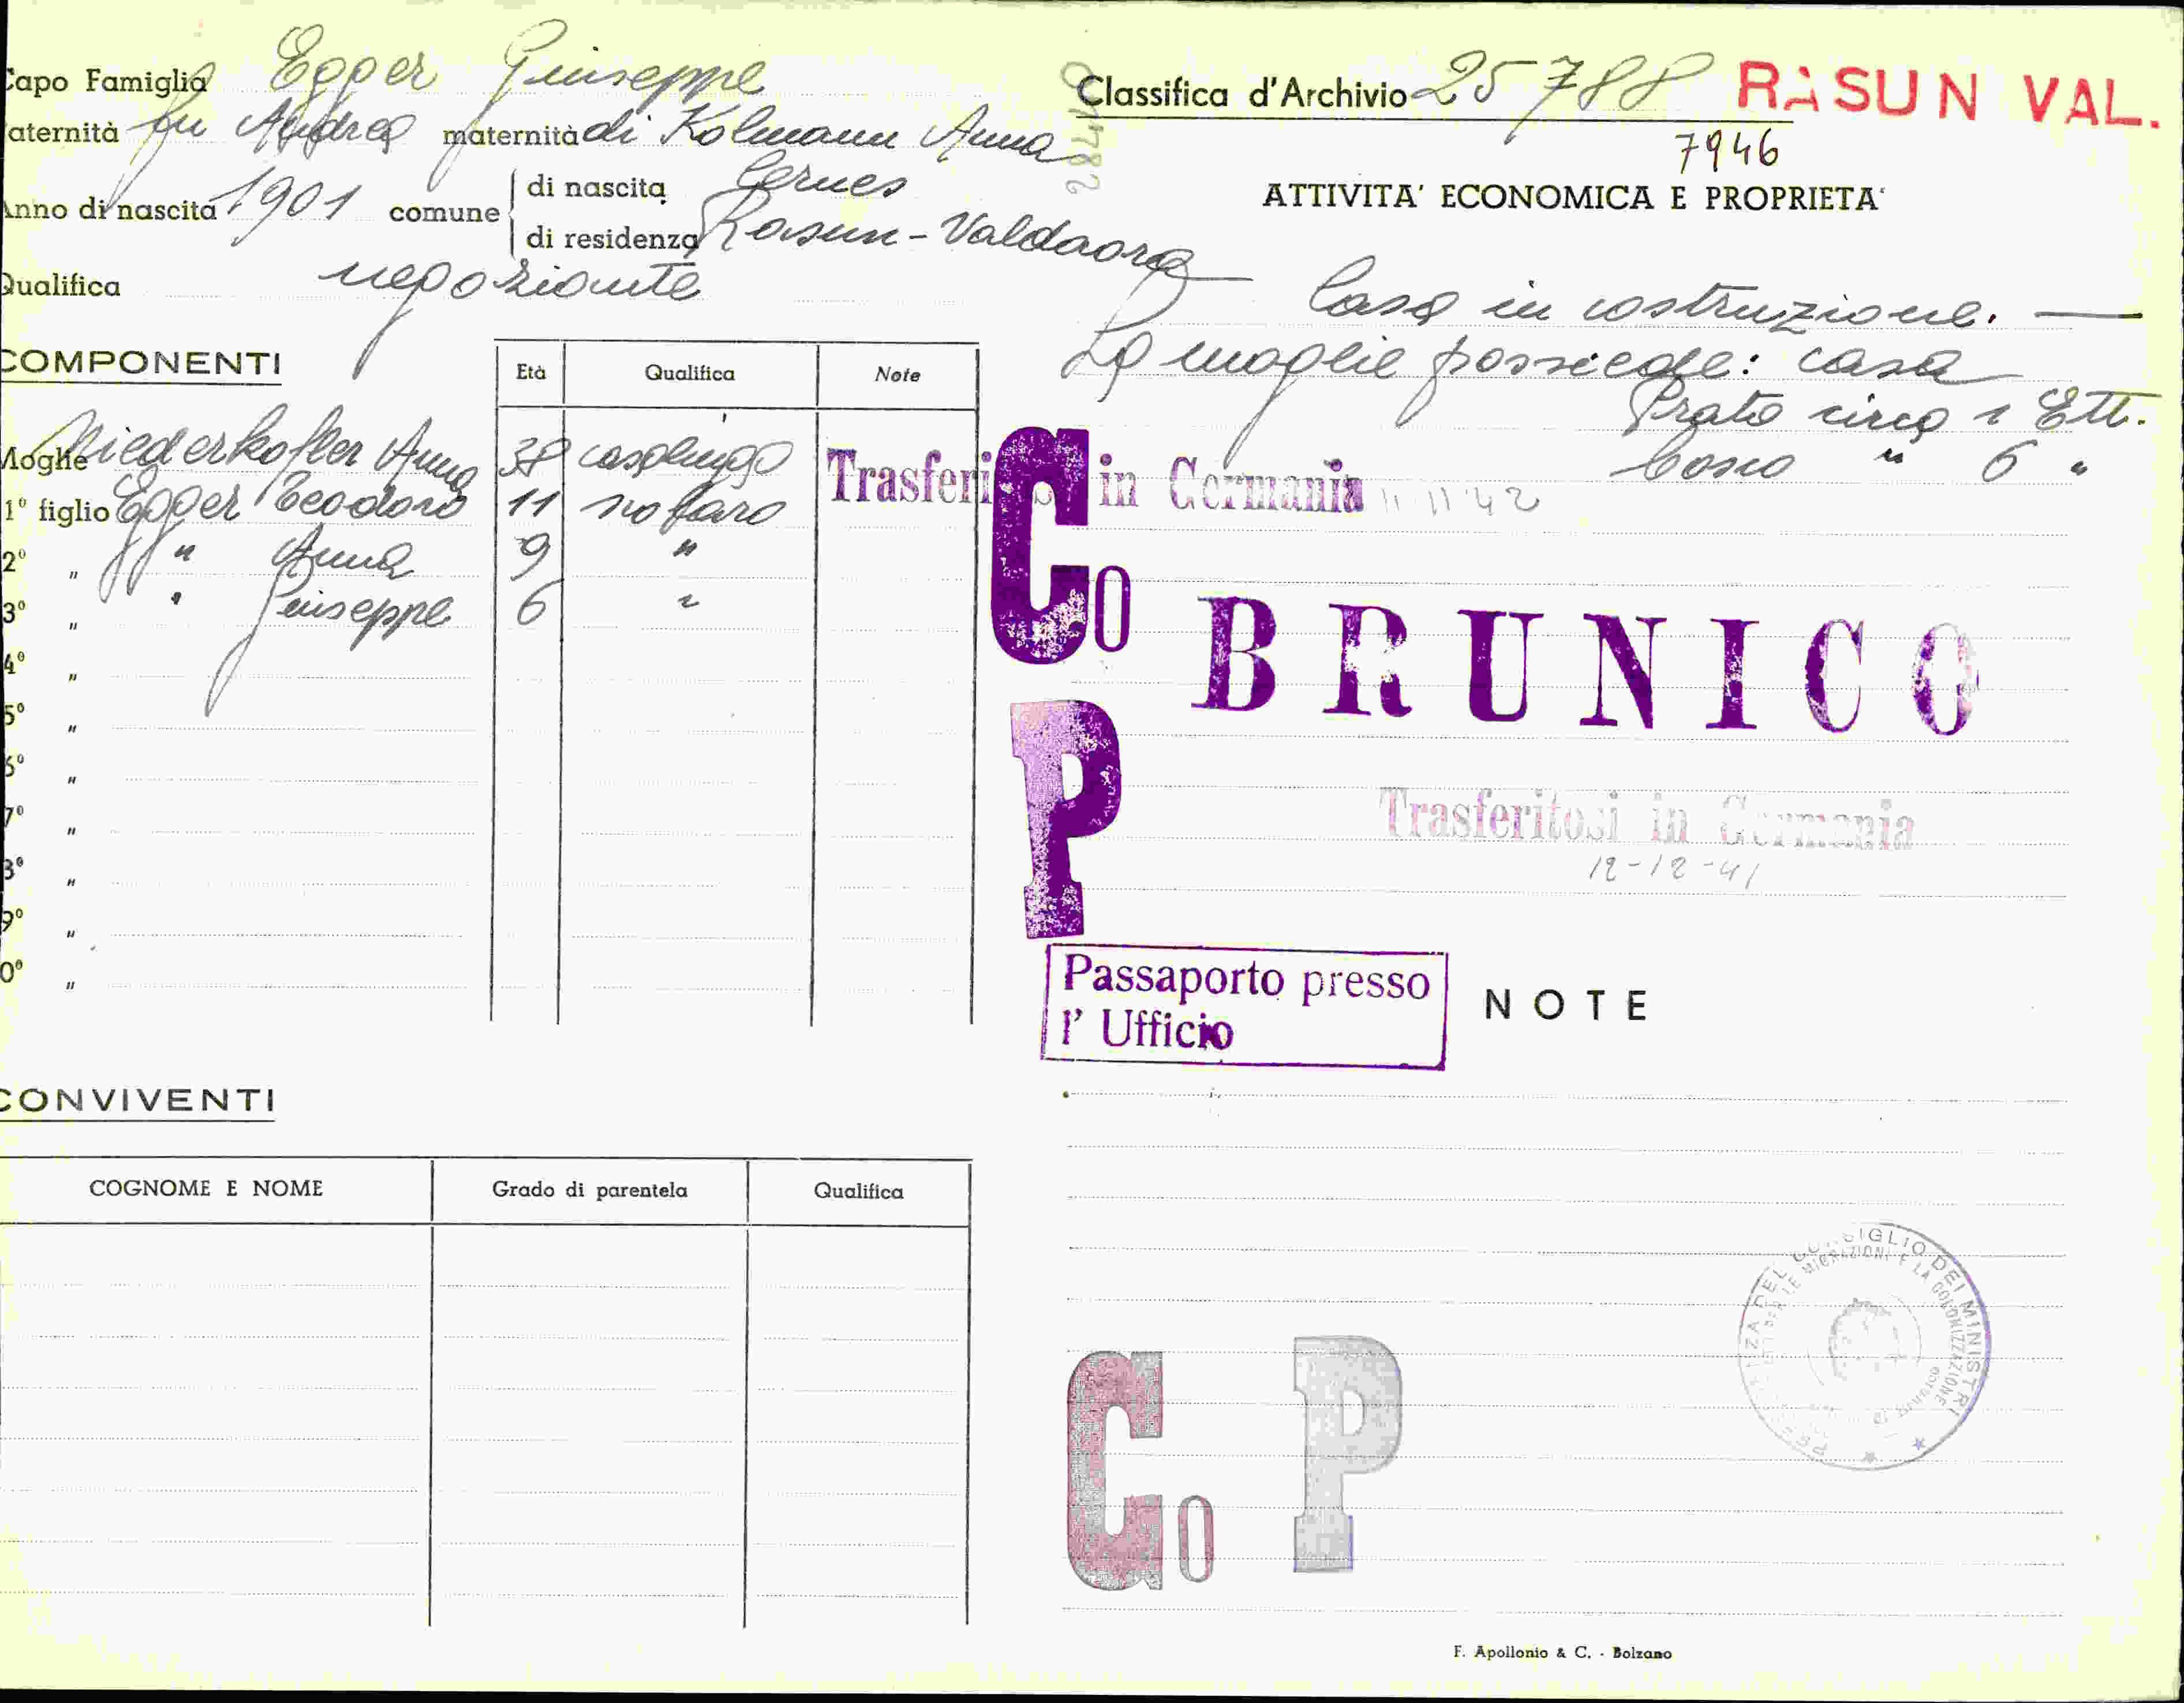 Capo Famiglia Egger Giuseppe
Paternità fu Andrea maternità di Kolmann Anna
Anno di nascita 1901 comune di nascita Cernes
di residenza Rasun - Valdaora
Qualifica negoziante
COMPONENTI
Età Qualifica Note
Moglie Niederkofler Anna 38 casalinga Trasferi in Germania 11 11 42
1° figlio Egger Teodoro 11 scolaro
2° " " Anna 9 "
3° " " Giuseppe 6 "
4° "
5° "
6° "
7° "
8° "
9° "
10° "
CONVIVENTI
COGNOME E NOME Grado di parentela Qualifica
Classifica d'Archivio 25788 RASUN VAL.
7946
ATTIVITA' ECONOMICA E PROPRIETA'
Casa in costruzione. —
La moglie possiede: casa
Prato circa 1 Ett.
bosco " 6 "
Co
BRUNICO
P
Trasferitosi in Germania
12-12-41
Passaporto presso
l' Ufficio
NOTE
CONSIGLIO DEI MINISTRI
MIGRAZIONI E LA COLONIZZAZIONE
Co P
F. Apollonio & C. - Bolzano